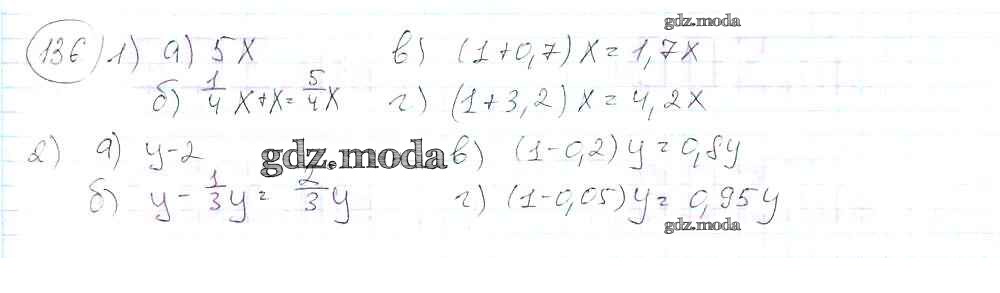 gdz.moda
136) 1) а) 5x в) (1+0,7)x=1,7x
б) 1/4 x+x=5/4 x г) (1+3,2)x=4,2x
2) а) y-2 gdz.moda в) (1-0,2)y=0,8y
б) y-1/3 y=2/3 y г) (1-0,05)y=0,95y
gdz.moda